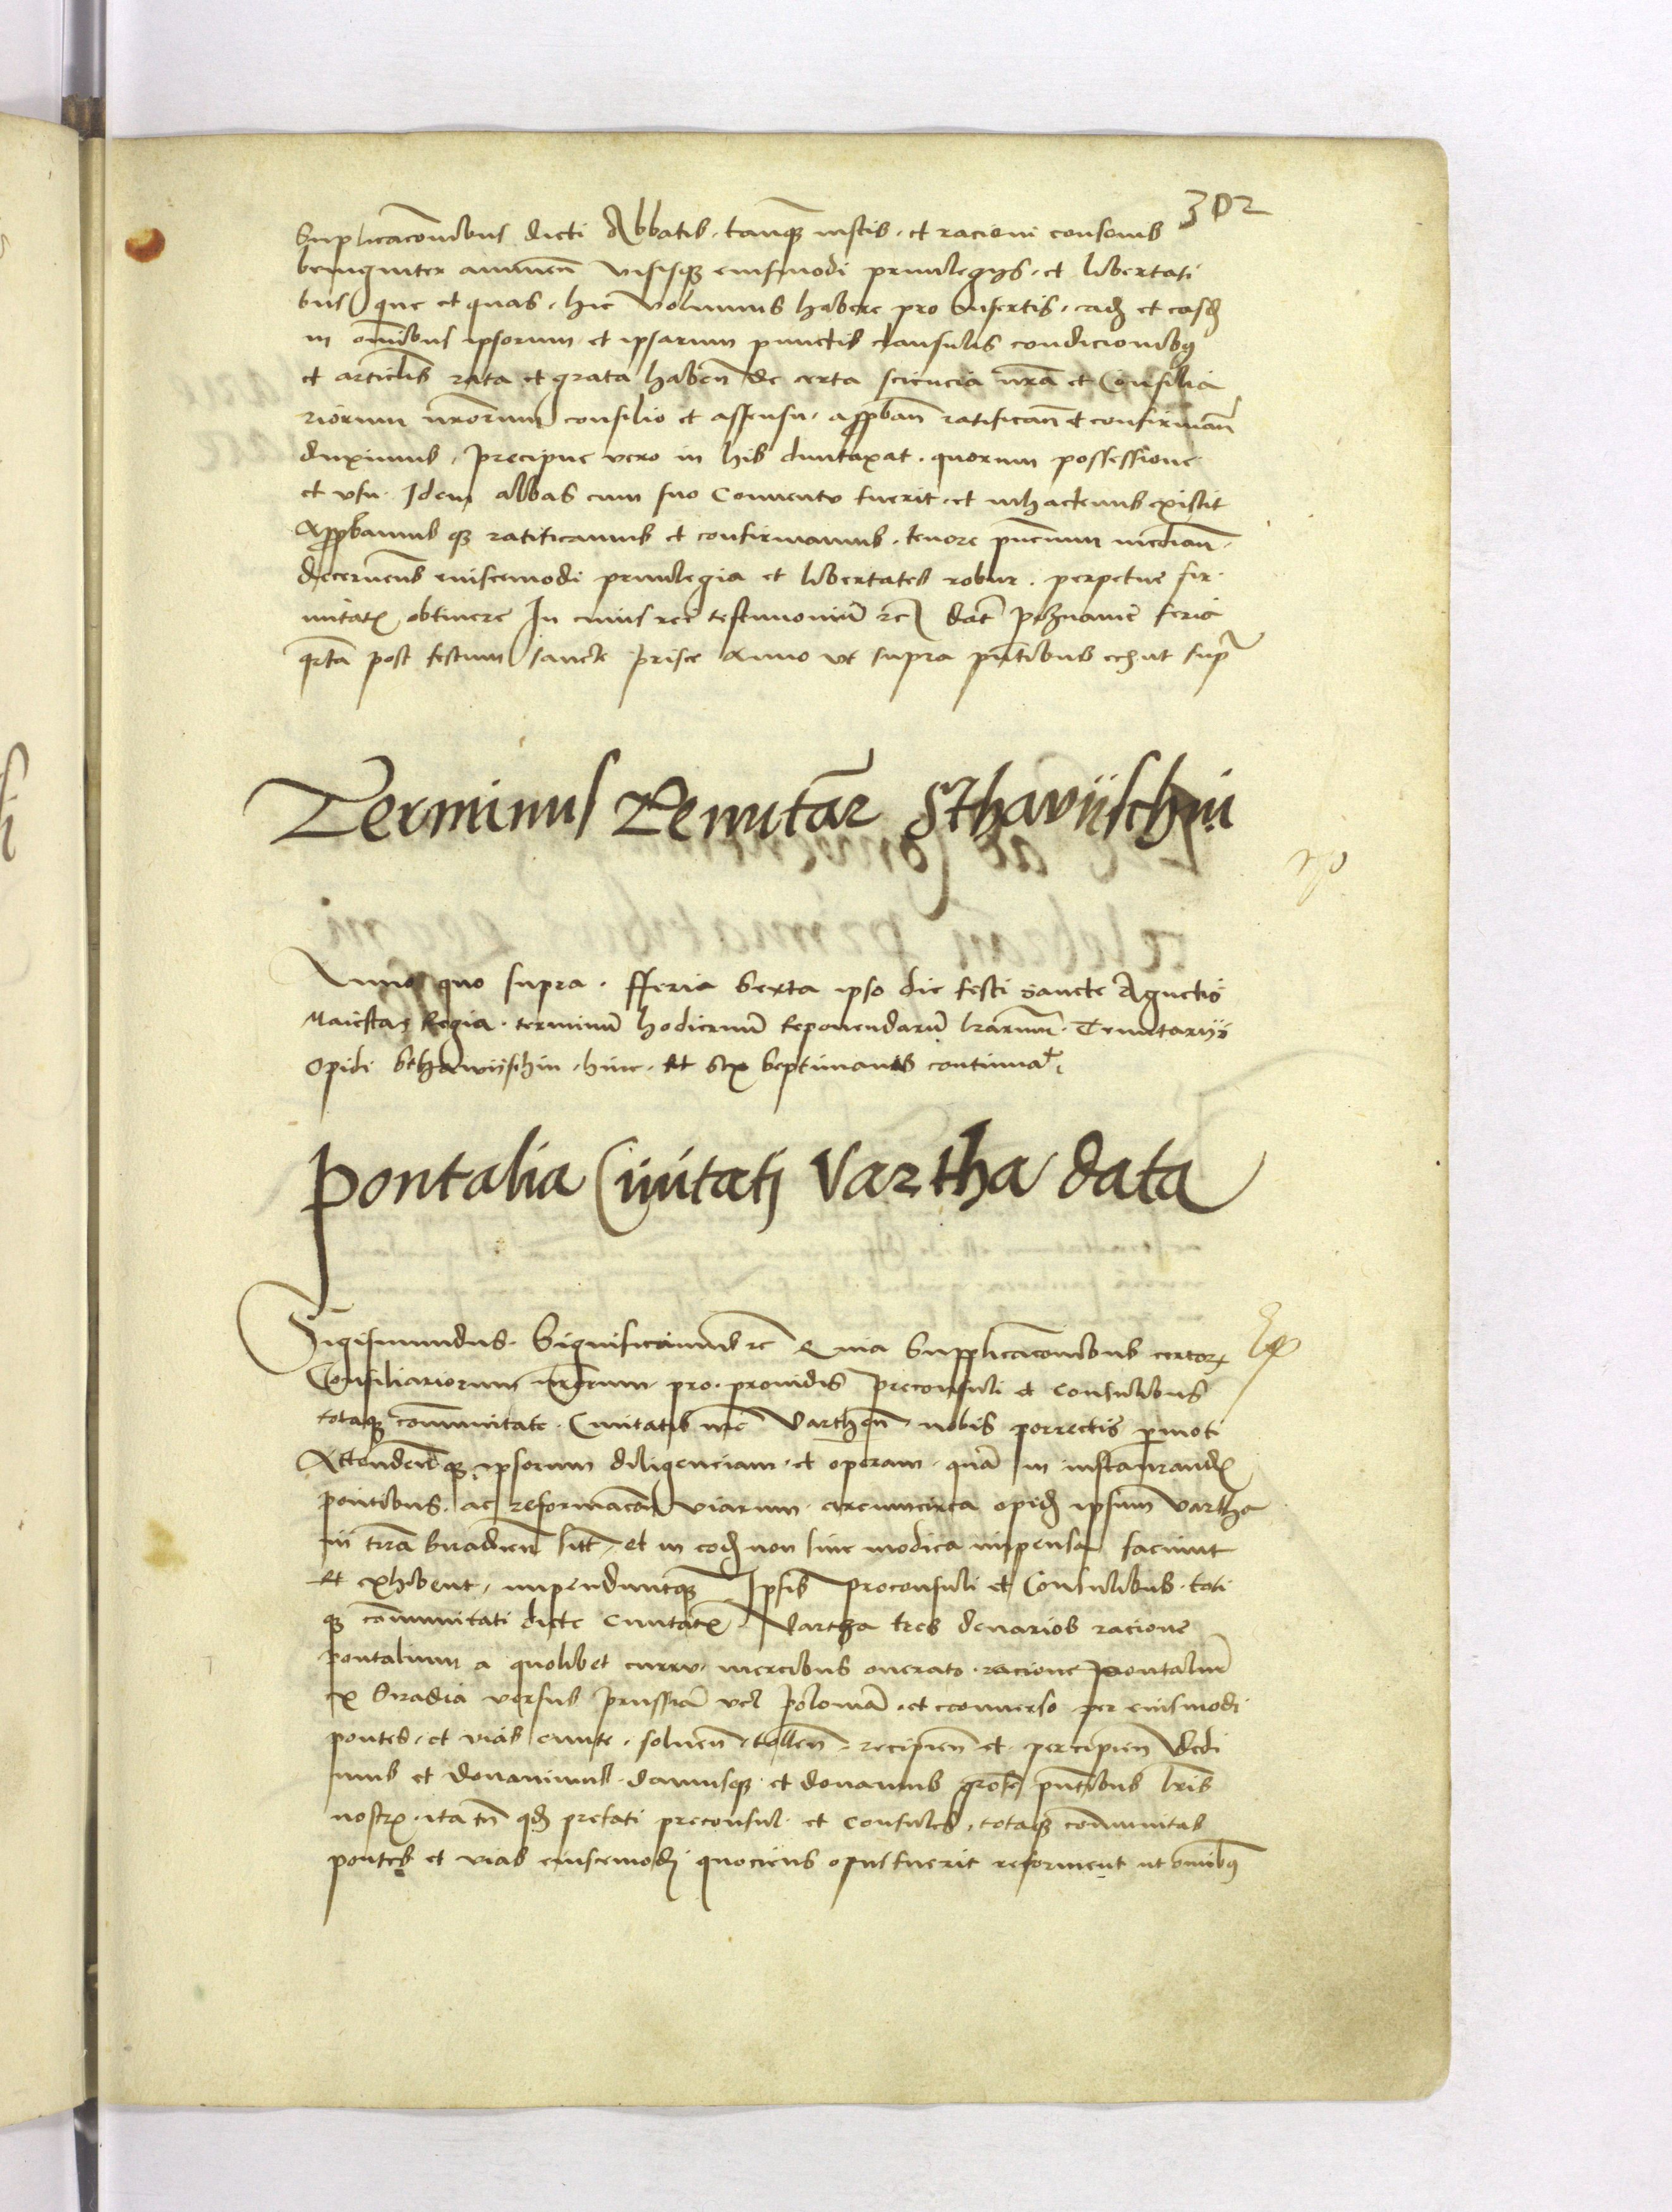 302
Suplicacōnibus dicti Abbatis · tanq̃ iustis · et racioni consonis
benigniter annuen̄ visisq̃ eiusmodi priuilegÿs · et libertati
bus que et quas · hic volumus habere pro Insertis · eadꝫ et easdꝫ
in om̄ibus ipsorum et ipsarum punctis clausulis condicionibꝫ
et articl̄is rata et grata haben̄ de certa sciencia nr̄a et Consilia
riorum nr̄orum consilio et assensu · appͦban̄ ratifican̄ et confirman̄
duximus · precipue vero in his duntaxat · quorum possessione
et vsu · Idem abbas cum suo Conuentu fuerit · et inhactenus existit
Appͦbamus qꝫ ratificamus et confirmamus · tenore pn̄cium median̄ ·
decernen̄s eiuscemodi priuilegia et libertates robur · perpetue fir
mitatꝭ obtinere In cuius rei testimoniū ꝛc̄ Dat̄ poznanie feria
qr̄ta post festum sancte Prisce Anno vt supra pn̄tibus eisḥ ut supꝛᵃ
Terminus Tenutar̄ Sthavÿschin
Anno quo supra · fferia Sexta ipso die festi Sancte Agnetis
Maiestas Regia · terminū hodiernū reponendarū lr̄arum · Tenutarÿs
opidi Sthawÿschin · hinc · Et Sex Septimanis continuat ·
Pontalia Ciuitatj Vartha data
Sigismundus · Significamus ꝛc̄ Quia Supplicacōnibus certoꝝ
Consiliariorum nr̄orum · pro · prouidis preconsuli et Consulibus
totaqꝫ com̄unitate · Ciuitatis nr̄e Varthen̄ · nobis porrectis ꝑmoti
Attenden̄qꝫ ipsorum diligenciam · et operam · quā in instaurandꝭ
pontibus · ac reformacōe viarum · circumcirca opidꝫ ipsum Vartha
in terrā Siradien̄ sitt̄ · et in eodꝫ non sine modica impensa faciunt
Et exhibent · impenduntqꝫ Ipsis Proconsuli et Consulibus · toti
qꝫ com̄unitati dicte Ciuitatꝭ Vartha tres denarios racione
pontalium a quolibet curru · mercibus onerato · racione pontaliū
ex Siradia versus Prussiā vel poloniā · et econuerso per eiusmodi
pontes · et vias eunte · soluen̄ · tollen̄ · recipien̄ et · percipien̄ Dedi
mus et donauimus · damusqꝫ · et donamus grōse pn̄tibus lr̄is
nostrꝭ · ita tn̄ qdꝫ prefati preconsul · et Consules · totaqꝫ com̄unitas
pontes et vias eiuscemodj quociens opus fuerit reforment ut om̄ibꝫ